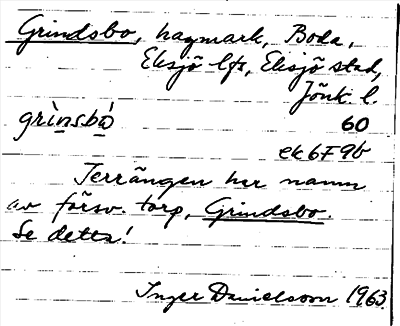 Grindsbo, hagmark, Boda,
Eksjö lfs, Eksjö stad,
Jönk. l.
grìnsbó 60
ek 6F9b
Terrängen har namn
av försv. torp, Grindsbo.
Se detta!
Inger Danielsson 1963.